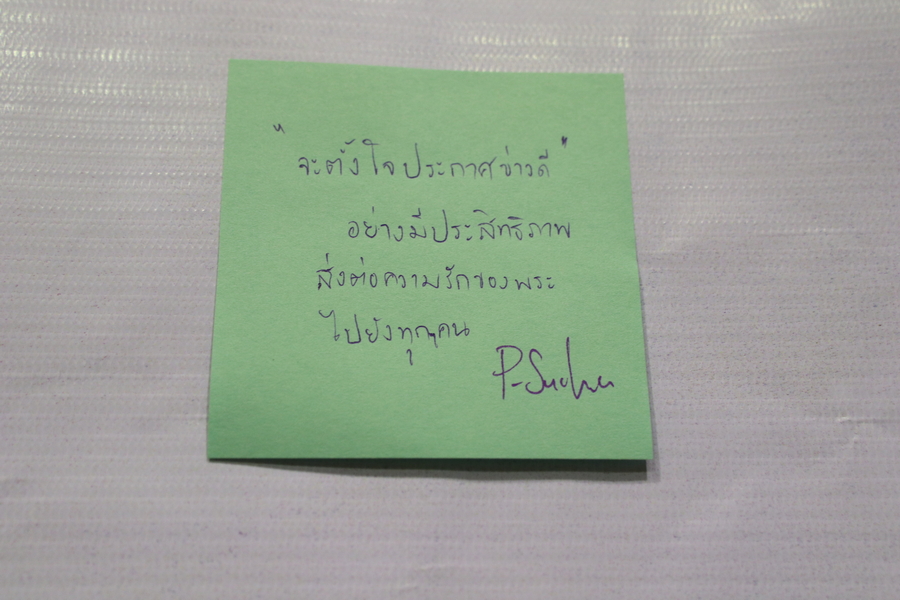 "จะตั้งใจประกาศข่าวดี"
อย่างมีประสิทธิภาพ
ส่งต่อความรักของพระ
ไปยังทุกๆคน